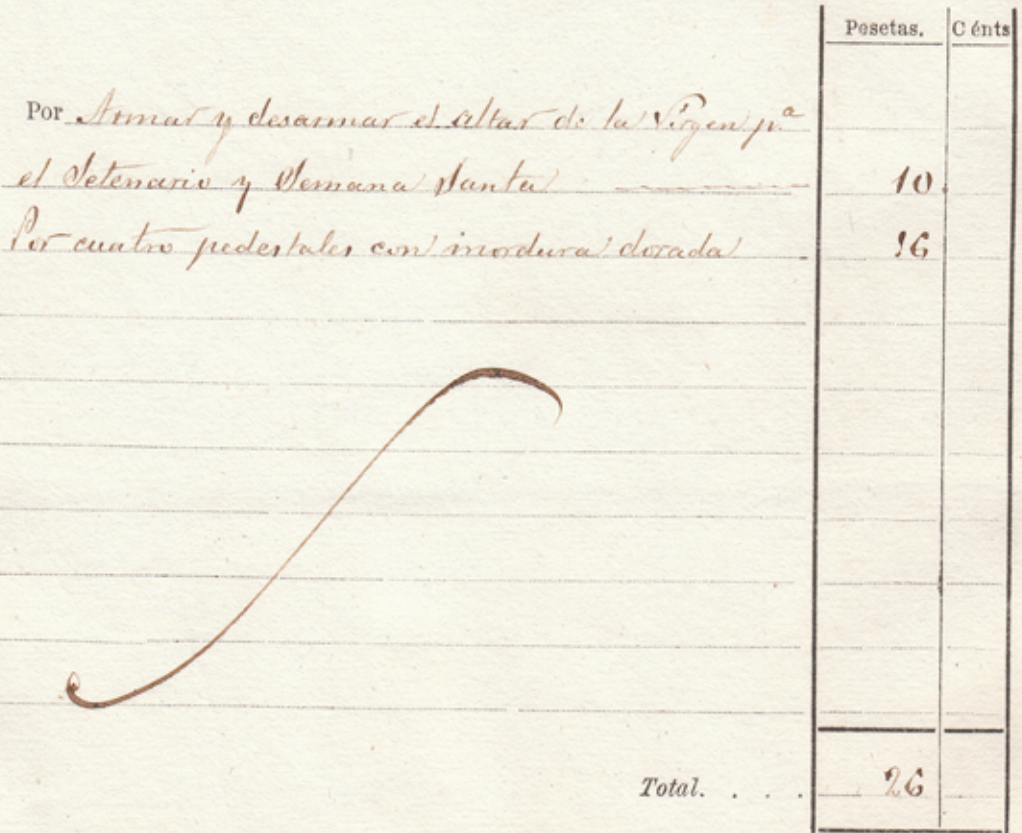 Pesetas. Cénts
Por Armar y desarmar el altar de la Virgen p.ª
el Setenario y Semana Santa 10.
Por cuatro pedestales con mordura dorada 16
Total. . . . 26